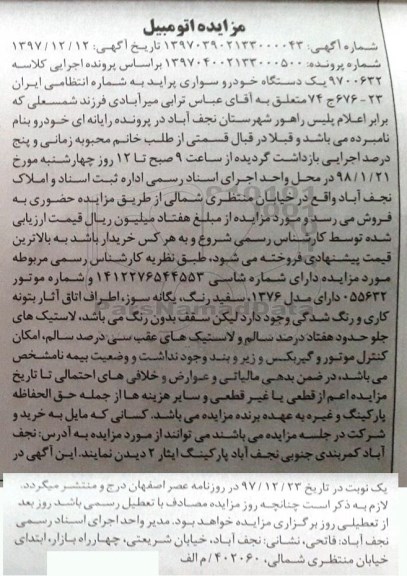 مزایده اتومبیل
شماره آگهی: ۱۳۹۷۰۳۹۰۲۱۳۳۰۰۰۰۴۳ تاریخ آگهی: ۱۳۹۷/۱۲/۱۲
شماره پرونده: ۱۳۹۷۰۴۰۰۲۱۳۳۰۰۰۵۰۰ براساس پرونده اجرایی کلاسه
۹۷۰۰۶۳۲ یک دستگاه خودرو سواری پراید به شماره انتظامی ایران
۲۳-۶۷۶ج۷۴ متعلق به آقای عباس ترابی میرآبادی فرزند شمسعلی که
برابر اعلام پلیس راهور شهرستان نجف آباد در پرونده رایانه ای خودرو بنام
نامبرده می باشد و قبلا در قبال قسمتی از طلب خانم محبوبه زمانی و پنج
درصد اجرایی بازداشت گردیده از ساعت ۹ صبح تا ۱۲ روز چهارشنبه مورخ
۹۸/۱/۲۱ در محل واحد اجرای اسناد رسمی اداره ثبت اسناد و املاک
نجف آباد واقع در خیابان منتظری شمالی از طریق مزایده حضوری به
فروش می رسد و مورد مزایده از مبلغ هفتاد میلیون ریال قیمت ارزیابی
شده توسط کارشناس رسمی شروع و به هر کس خریدار باشد به بالاترین
قیمت پیشنهادی فروخته می شود، طبق نظریه کارشناس رسمی مربوطه
مورد مزایده دارای شماره شاسی ۱۴۱۲۲۷۶۵۴۴۵۵۳ و شماره موتور
۰۵۵۶۳۲ دارای مدل ۱۳۷۶، سفید رنگ، یگانه سوز، اطراف اتاق آثار بتونه
کاری و رنگ شدگی وجود دارد لیکن سقف بدون رنگ می باشد، لاستیک های
جلو حدود هفتاد درصد سالم و لاستیک های عقب سی درصد سالم، امکان
کنترل موتور و گیربکس و زیر و بند وجود نداشت و وضعیت بیمه نامشخص
می باشد، در ضمن بدهی مالیاتی و عوارض و خلافی های احتمالی تا تاریخ
مزایده اعم از قطعی یا غیر قطعی و سایر هزینه ها از جمله حق الحفاظه
پارکینگ و غیره به عهده برنده مزایده می باشد. کسانی که مایل به خرید و
شرکت در جلسه مزایده می باشند می توانند از مورد مزایده به آدرس: نجف
آباد کمربندی جنوبی نجف آباد پارکینگ ایثار ۲ دیدن نمایند. این آگهی در
یک نوبت در تاریخ ۹۷/۱۲/۲۳ در روزنامه عصر اصفهان درج و منتشر میگردد.
لازم به ذکر است چنانچه روز مزایده مصادف با تعطیل رسمی باشد روز بعد
از تعطیلی روز برگزاری مزایده خواهد بود. مدیر واحد اجرای اسناد رسمی
نجف آباد: فاتحی، نشانی: نجف آباد، خیابان شریعتی، چهارراه بازار، ابتدای
خیابان منتظری شمالی، ۴۰۲۰۶۰/م الف